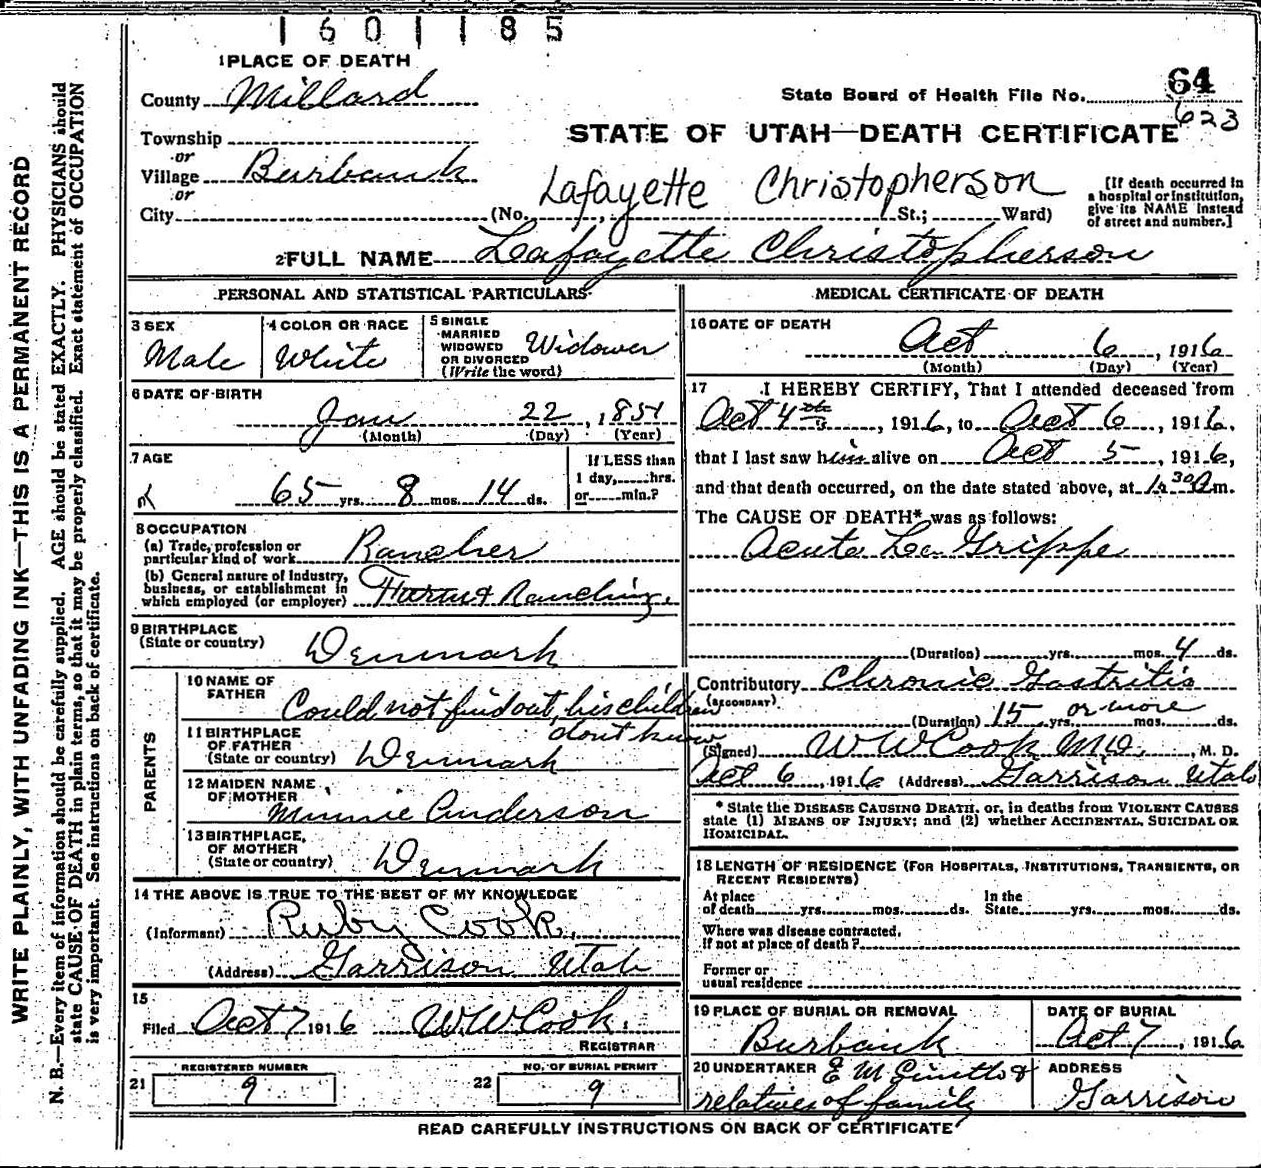 1601185
1 PLACE OF DEATH
County Millard
State Board of Health File No. 64
623
Township
or
Village Burbank
or
City
STATE OF UTAH—DEATH CERTIFICATE
Lafayette Christopherson
(No. St.; Ward)
[If death occurred in a hospital or institution, give its NAME instead of street and number.]
2 FULL NAME Lafayette Christopherson
PERSONAL AND STATISTICAL PARTICULARS
3 SEX
Male
4 COLOR OR RACE
White
5 SINGLE
MARRIED
WIDOWED
OR DIVORCED
(Write the word)
Widower
6 DATE OF BIRTH
Jan 22, 1851
(Month) (Day) (Year)
7 AGE
65 yrs. 8 mos. 14 ds.
If LESS than
1 day, hrs.
or min.?
8 OCCUPATION
(a) Trade, profession or
particular kind of work Rancher
(b) General nature of Industry,
business, or establishment in
which employed (or employer) Ranching.
9 BIRTHPLACE
(State or country) Denmark
PARENTS
10 NAME OF
FATHER
Could not find out, his children
dont know
11 BIRTHPLACE
OF FATHER
(State or country) Denmark
12 MAIDEN NAME
OF MOTHER
Minnie Anderson
13 BIRTHPLACE
OF MOTHER
(State or country) Denmark
14 THE ABOVE IS TRUE TO THE BEST OF MY KNOWLEDGE
(Informant) Ruby Cook.
(Address) Garrison Utah
15
Filed Oct 7 1916 W W Cook.
REGISTRAR
REGISTERED NUMBER
21 9
NO. OF BURIAL PERMIT
22 9
MEDICAL CERTIFICATE OF DEATH
16 DATE OF DEATH
Oct 6, 1916
(Month) (Day) (Year)
17 I HEREBY CERTIFY, That I attended deceased from
Oct 4th, 1916, to Oct 6, 1916,
that I last saw him alive on Oct 5, 1916,
and that death occurred, on the date stated above, at 1.30 a m.
The CAUSE OF DEATH* was as follows:
Acute La Grippe
(Duration) yrs. mos. 4 ds.
Contributory Chronic Gastritis
(SECONDARY)
(Duration) 15 yrs. or more mos. ds.
(Signed) W W Cook MD., M. D.
Oct 6, 1916 (Address) Garrison Utah
* State the DISEASE CAUSING DEATH, or, in deaths from VIOLENT CAUSES
state (1) MEANS OF INJURY; and (2) whether ACCIDENTAL, SUICIDAL OR
HOMICIDAL.
18 LENGTH OF RESIDENCE (FOR HOSPITALS, INSTITUTIONS, TRANSIENTS, OR
RECENT RESIDENTS)
At place
of death yrs. mos. ds.
In the
State yrs. mos. ds.
Where was disease contracted,
if not at place of death?
Former or
usual residence
19 PLACE OF BURIAL OR REMOVAL
Burbank
DATE OF BURIAL
Oct 7, 1916
20 UNDERTAKER E M &
relatives of family
ADDRESS
Garrison
READ CAREFULLY INSTRUCTIONS ON BACK OF CERTIFICATE
WRITE PLAINLY, WITH UNFADING INK—THIS IS A PERMANENT RECORD
N. B.—Every item of information should be carefully supplied. AGE should be stated EXACTLY. PHYSICIANS should
state CAUSE OF DEATH in plain terms, so that it may be properly classified. Exact statement of OCCUPATION
is very important. See instructions on back of certificate.